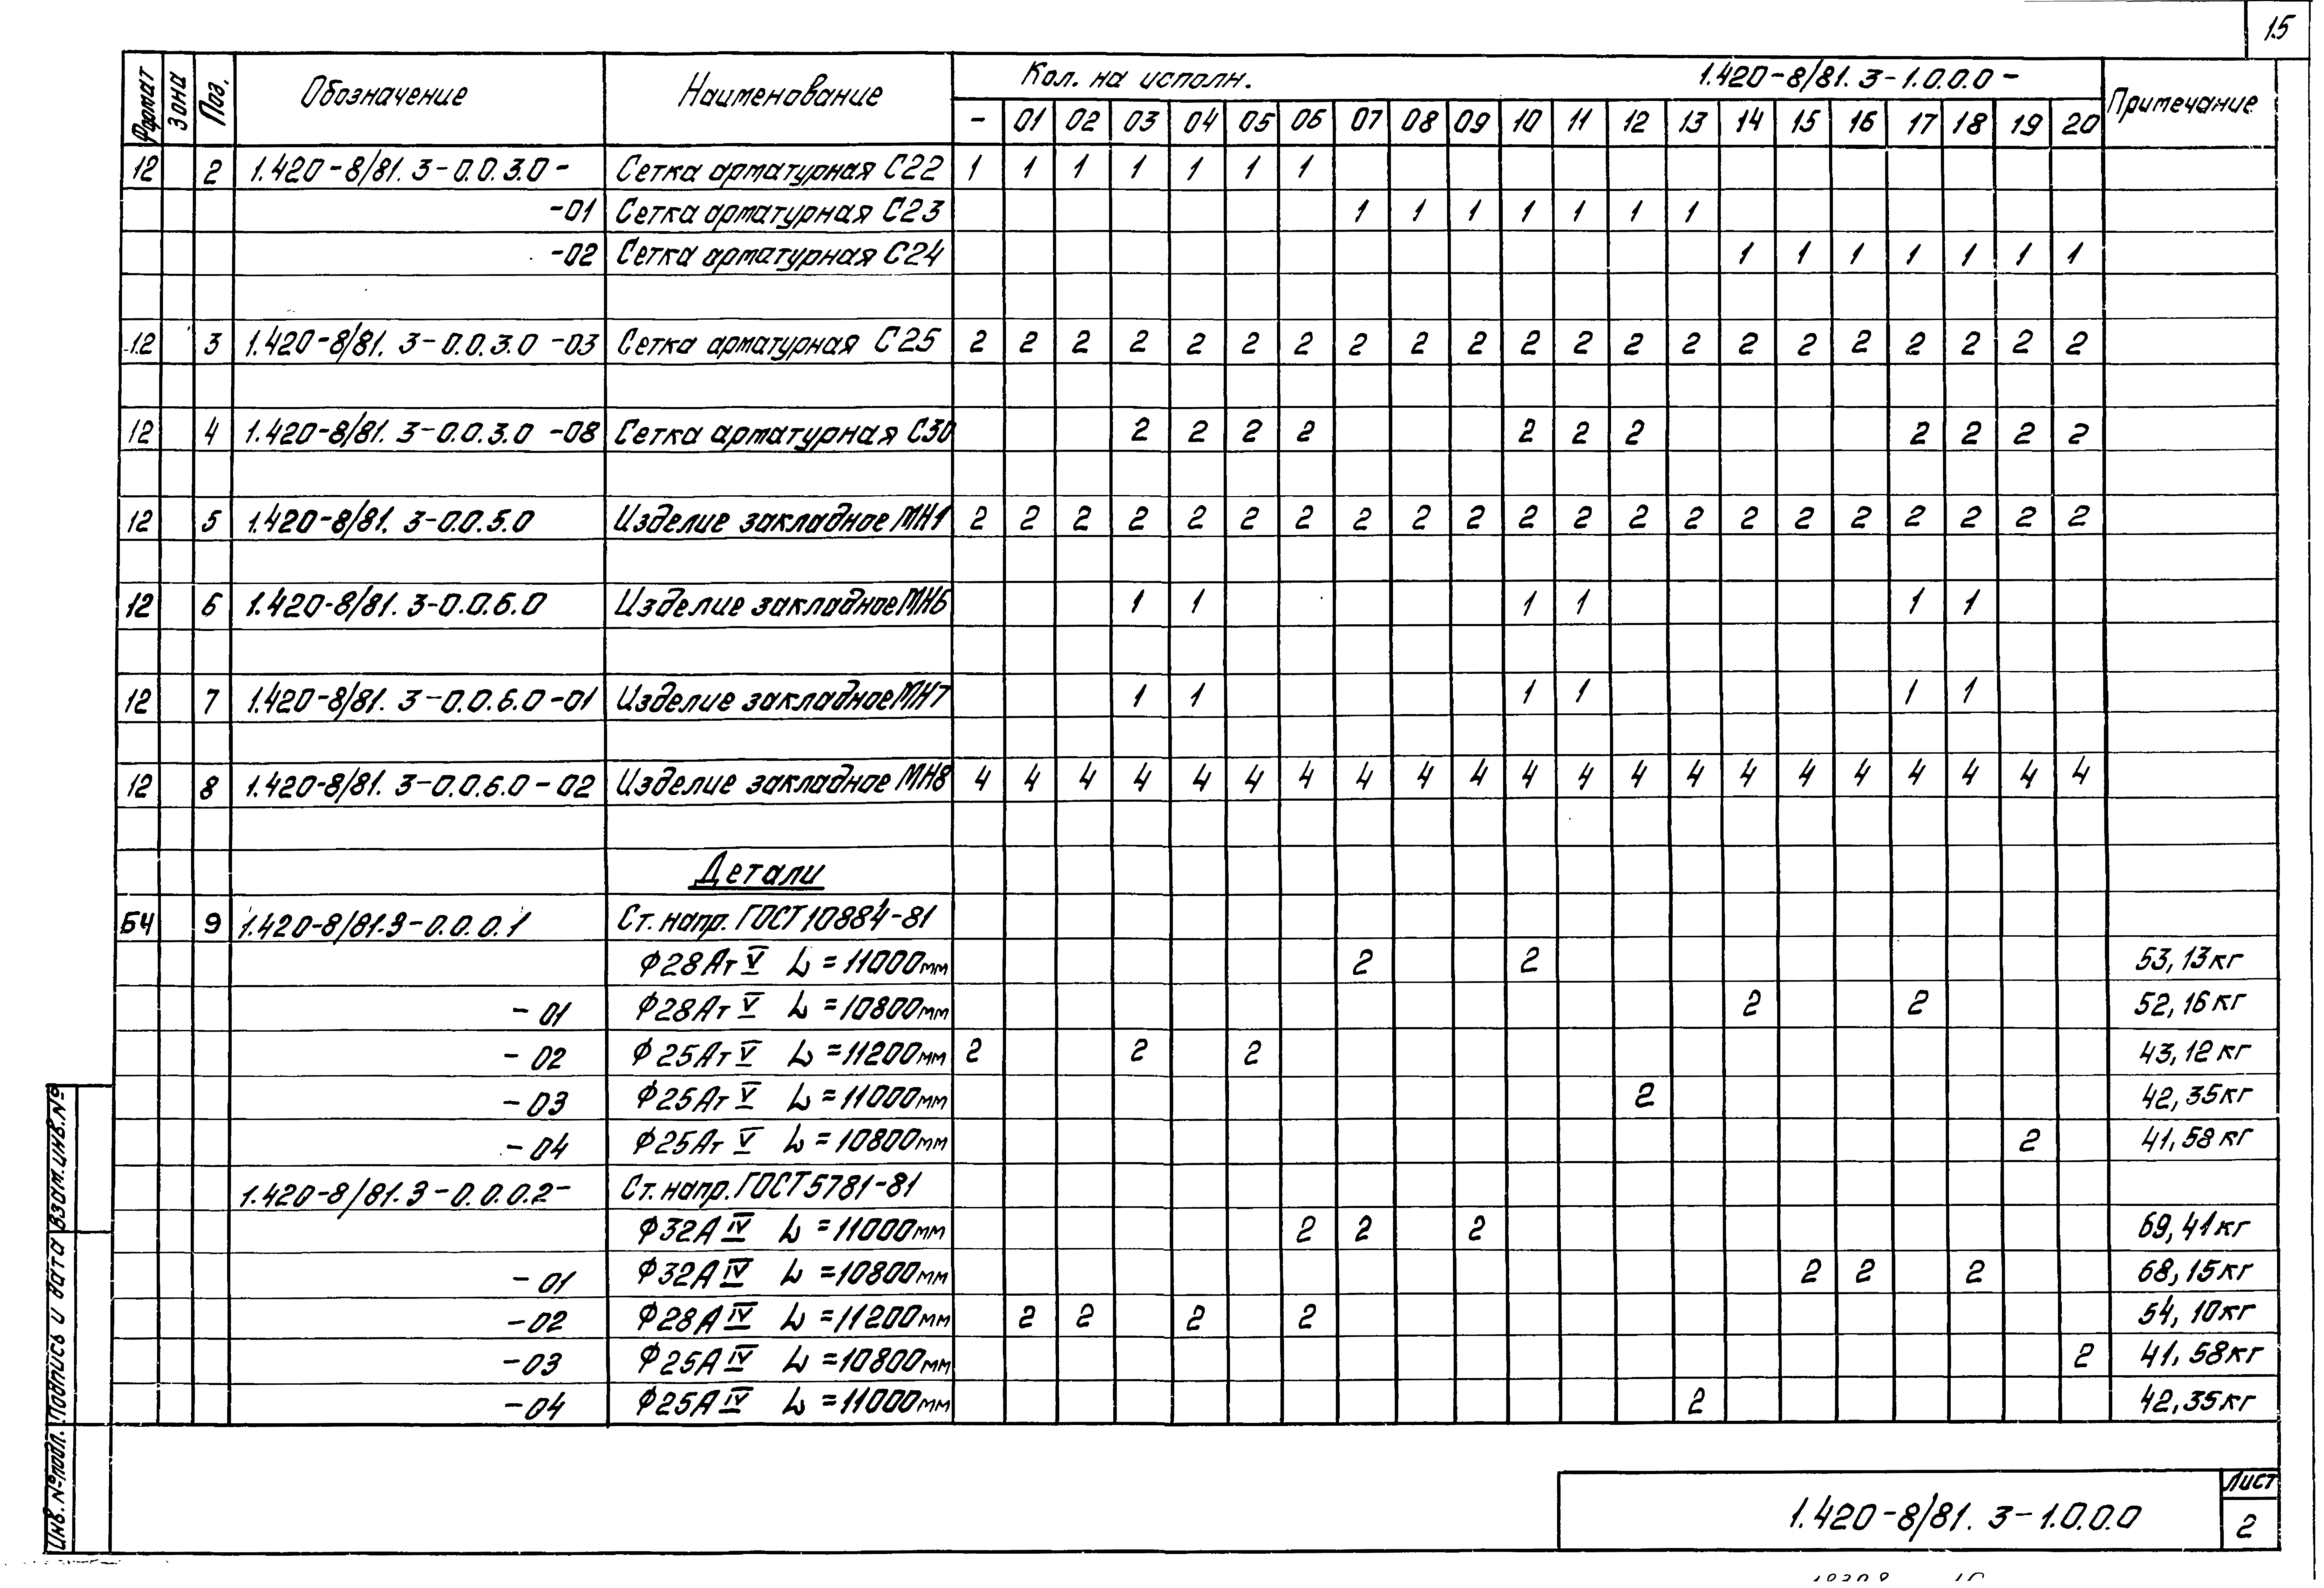 15
Формат Зона Поз. Обозначение Наименование Кол. на исполн. 1.420-8/81. 3-1.0.0.0 - Примечание
- 01 02 03 04 05 06 07 08 09 10 11 12 13 14 15 16 17 18 19 20
12 2 1.420-8/81. 3-0.0.3.0 - Сетка арматурная С22 1 1 1 1 1 1 1
-01 Сетка арматурная С23 1 1 1 1 1 1 1
-02 Сетка арматурная С24 1 1 1 1 1 1 1
12 3 1.420-8/81. 3-0.0.3.0 -03 Сетка арматурная С25 2 2 2 2 2 2 2 2 2 2 2 2 2 2 2 2 2 2 2 2 2
12 4 1.420-8/81. 3-0.0.3.0 -08 Сетка арматурная С30 2 2 2 2 2 2 2 2 2 2 2
12 5 1.420-8/81. 3-0.0.5.0 Изделие закладное МН1 2 2 2 2 2 2 2 2 2 2 2 2 2 2 2 2 2 2 2 2 2
12 6 1.420-8/81. 3-0.0.6.0 Изделие закладное МН6 1 1 1 1 1 1
12 7 1.420-8/81. 3-0.0.6.0-01 Изделие закладное МН7 1 1 1 1 1 1
12 8 1.420-8/81. 3-0.0.6.0-02 Изделие закладное МН8 4 4 4 4 4 4 4 4 4 4 4 4 4 4 4 4 4 4 4 4 4
Детали
БЧ 9 1.420-8/81.3-0.0.0.1 Ст. напр. ГОСТ 10884-81
Ф28Ат V L=11000мм 2 2 53,13кг
-01 Ф28Ат V L=10800мм 2 2 52,16кг
-02 Ф25Ат V L=11200мм 2 2 2 43,12кг
-03 Ф25Ат V L=11000мм 2 42,35кг
-04 Ф25Ат V L=10800мм 2 41,58кг
1.420-8/81.3-0.0.0.2- Ст. напр. ГОСТ 5781-81
Ф32А IV L=11000мм 2 2 2 69,41кг
-01 Ф32А IV L=10800мм 2 2 2 68,15кг
-02 Ф28А IV L=11200мм 2 2 2 2 54,10кг
-03 Ф25А IV L=10800мм 2 41,58кг
-04 Ф25А IV L=11000мм 2 42,35кг
Инв. № подл. Подпись и дата Взам. инв. №
1.420-8/81. 3-1.0.0.0
Лист
2